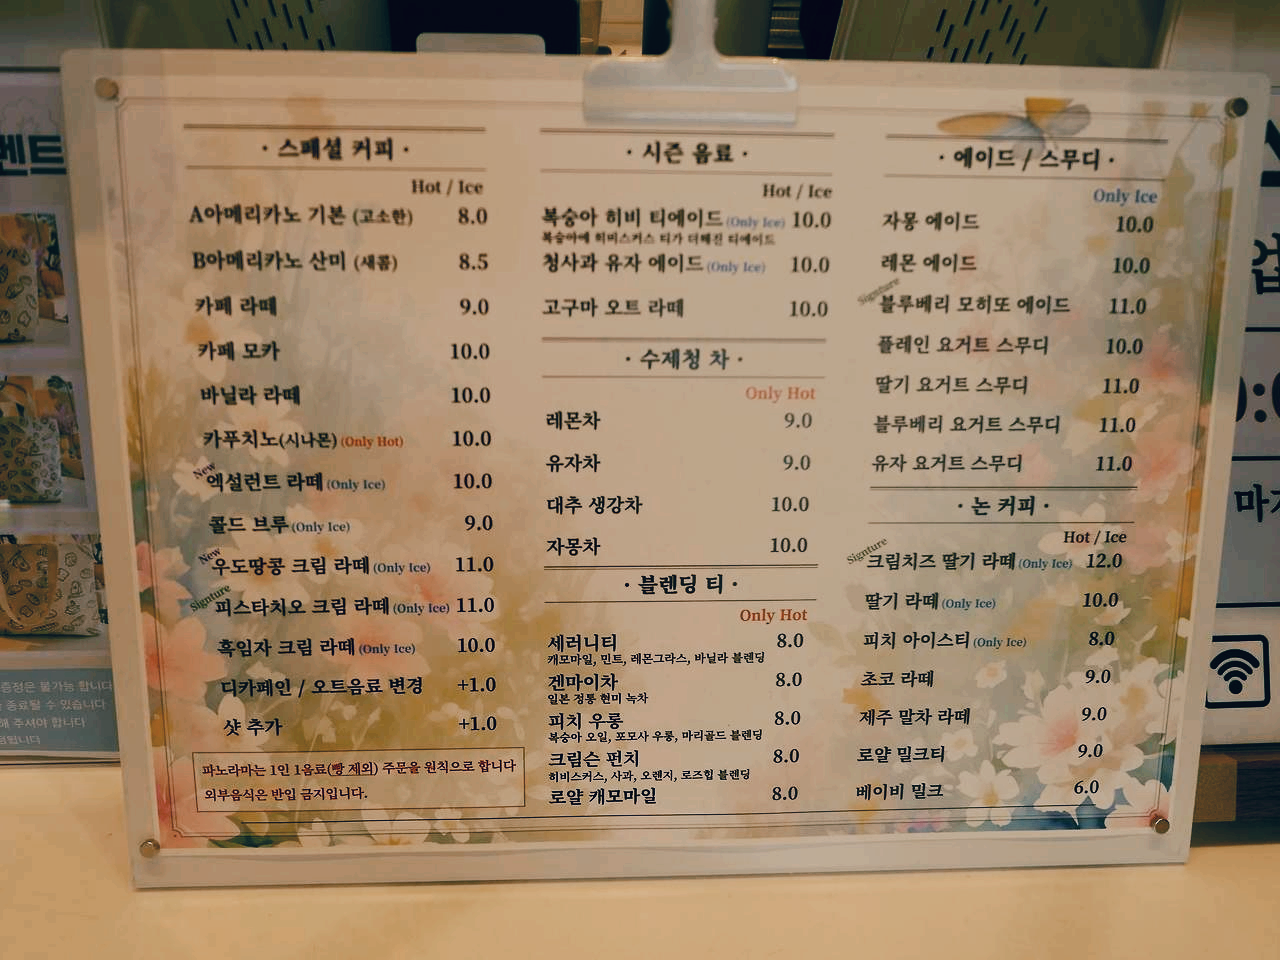 벤트
증정은 불가능 합니다
종료될 수 있습니다
해 주셔야 합니다
· 스페셜 커피 ·
Hot / Ice
A아메리카노 기본 (고소한) 8.0
B아메리카노 산미 (새콤) 8.5
카페 라떼 9.0
카페 모카 10.0
바닐라 라떼 10.0
카푸치노(시나몬) (Only Hot) 10.0
New
엑설런트 라떼 (Only Ice) 10.0
콜드 브루 (Only Ice) 9.0
New
우도땅콩 크림 라떼 (Only Ice) 11.0
Signture
피스타치오 크림 라떼 (Only Ice) 11.0
흑임자 크림 라떼 (Only Ice) 10.0
디카페인 / 오트음료 변경 +1.0
샷 추가 +1.0
파노라마는 1인 1음료(빵 제외) 주문을 원칙으로 합니다
외부음식은 반입 금지입니다.
· 시즌 음료 ·
Hot / Ice
복숭아 히비 티에이드 (Only Ice) 10.0
복숭아에 히비스커스 티가 더해진 티에이드
청사과 유자 에이드 (Only Ice) 10.0
고구마 오트 라떼 10.0
· 수제청 차 ·
Only Hot
레몬차 9.0
유자차 9.0
대추 생강차 10.0
자몽차 10.0
· 블렌딩 티 ·
Only Hot
세러니티 8.0
캐모마일, 민트, 레몬그라스, 바닐라 블렌딩
겐마이차 8.0
일본 정통 현미 녹차
피치 우롱 8.0
복숭아 오일, 포모사 우롱, 마리골드 블렌딩
크림슨 펀치 8.0
히비스커스, 사과, 오렌지, 로즈힙 블렌딩
로얄 캐모마일 8.0
· 에이드 / 스무디 ·
Only Ice
자몽 에이드 10.0
레몬 에이드 10.0
Signture
블루베리 모히또 에이드 11.0
플레인 요거트 스무디 10.0
딸기 요거트 스무디 11.0
블루베리 요거트 스무디 11.0
유자 요거트 스무디 11.0
· 논 커피 ·
Hot / Ice
Signture
크림치즈 딸기 라떼 (Only Ice) 12.0
딸기 라떼 (Only Ice) 10.0
피치 아이스티 (Only Ice) 8.0
초코 라떼 9.0
제주 말차 라떼 9.0
로얄 밀크티 9.0
베이비 밀크 6.0
업
마